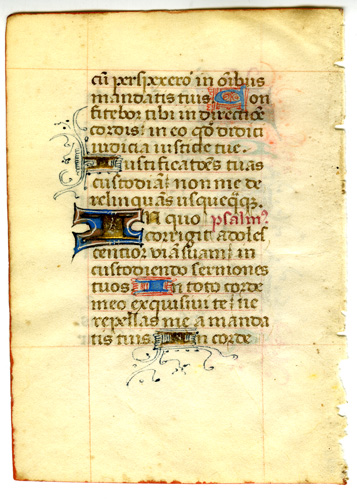 cũ perspexero in oĩbus
mandatis tuis. Con
fitebor tibi in directiõe
cordis: in eo qđ didici
iudicia iusticie tue.
Iustificatões tuas
custodiã: non me de
relinquas usquequaq.
In quo psalm9
corrigit adoles
centior viã suam: in
custodiendo sermones
tuos. In toto corde
meo exquisiui te: ne
repellas me a manda
tis tuis. In corde